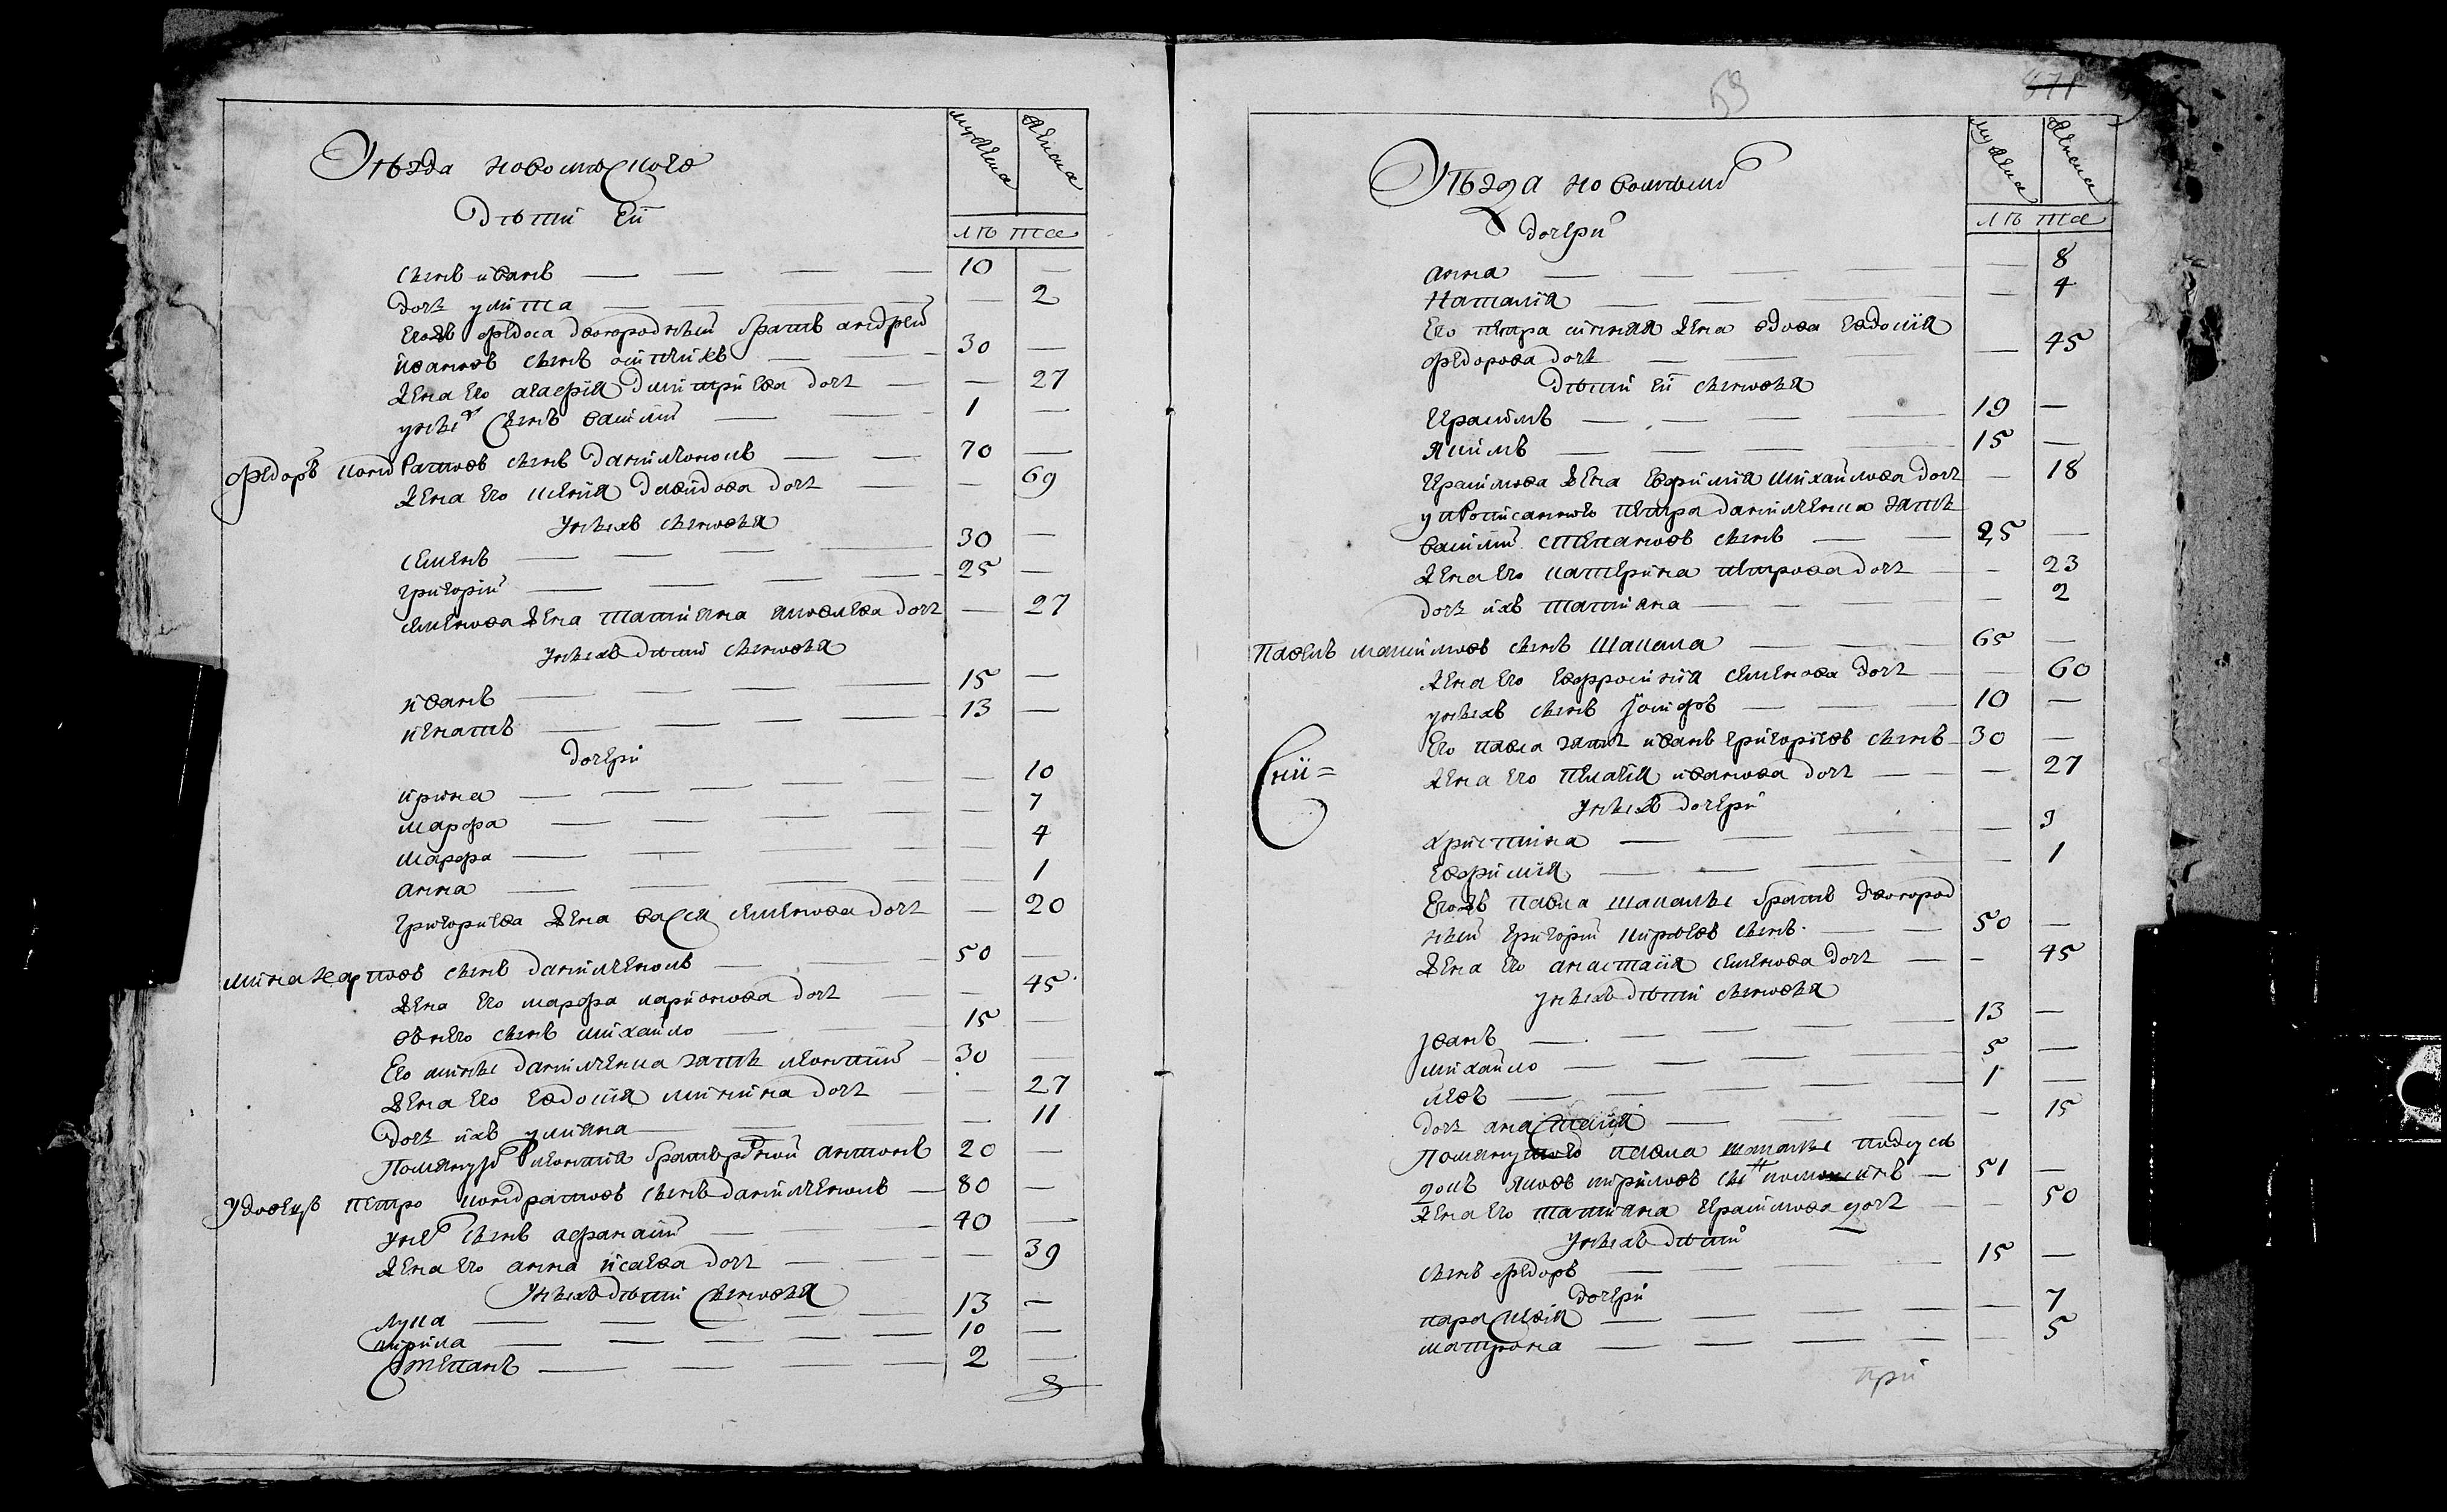 Уѣзда новомѣского
мужеска
женска
дѣти ей
лѣ та
Сынъ иванъ — 10 —
дочь улита — — 2
Егожъ федоса двоюродный братъ андрей
ивановъ сынъ — 30 —
жена его агафия дмитриева дочь — 27
у ные сынъ василий — 1 —
федоръ кондратовъ сынъ данилченокъ — 70 —
жена его ксения давидова дочь — 69
у ныхъ сыновья
семенъ — 30 —
григорий — 25 —
семенова жена татияна яковлева дочь — 27
у ныхъ дѣти сыновья
иванъ — 15 —
игнатъ — 13 —
дочери
ирина — 10
марфа — 7
марфа — 4
анна — 1
григориева жена васса семенова дочь — 20
мина карповъ сынъ данилченокъ — 50 —
жена его марфа ларионова дочь — 45
внего сынъ михайло — 15 —
Его мины данилченка зять леонтий — 30 —
жена его евдокия минина дочь — 27
дочь ихъ улияна — 11
Помянуто леонтия братъ родной антонъ 20 —
удовецъ петро кондратовъ сынъ данилченокъ — 80 —
у него сынъ афанасий — 40 —
жена его анна исаева дочь — 39
у ныхъ дѣти сыновья
лука — 13 —
кирила — 10 —
степанъ — 2 —
59
571
Уѣзда новомѣского
мужеска
женска
дочери
лѣ та
анна — 8
наталия — 4
Его петра жена вдова евдокия
федорова дочь — 45
дѣти ей сыновья
Герасимъ — 19 —
якимъ — 15 —
Герасимова жена евфимия михайлова дочь — 18
у вписанного петра данилченка зять
василий степановъ сынъ — 25 —
жена его катерина петрова дочь — 23
дочь ихъ татияна — 2
Павелъ максимовъ сынъ шапка — 65 —
жена его евфросиния семенова дочь — 60
у ныхъ сынъ иосифъ — 10 —
Его павла зять иванъ григориевъ сынъ — 30 —
жена его пелагия ивановна дочь — 27
у ныхъ дочери
христина — 3
евфимия — 1
Егожъ павла братъ двоюрод
ный григорий сынъ — 50 —
жена его анастасия семенова дочь — 45
у ныхъ дѣти сыновья
иванъ — 13 —
михайло — 5 —
левъ — 1 —
дочь анастасия — 15
Помянутого павла подсусѣ
докъ яковъ кириловъ сынъ — 51 —
жена его татияна Герасимова дочь — 50
у ныхъ дѣти
сынъ федоръ — 15 —
дочери
параскевия — 7
матрона — 5
При